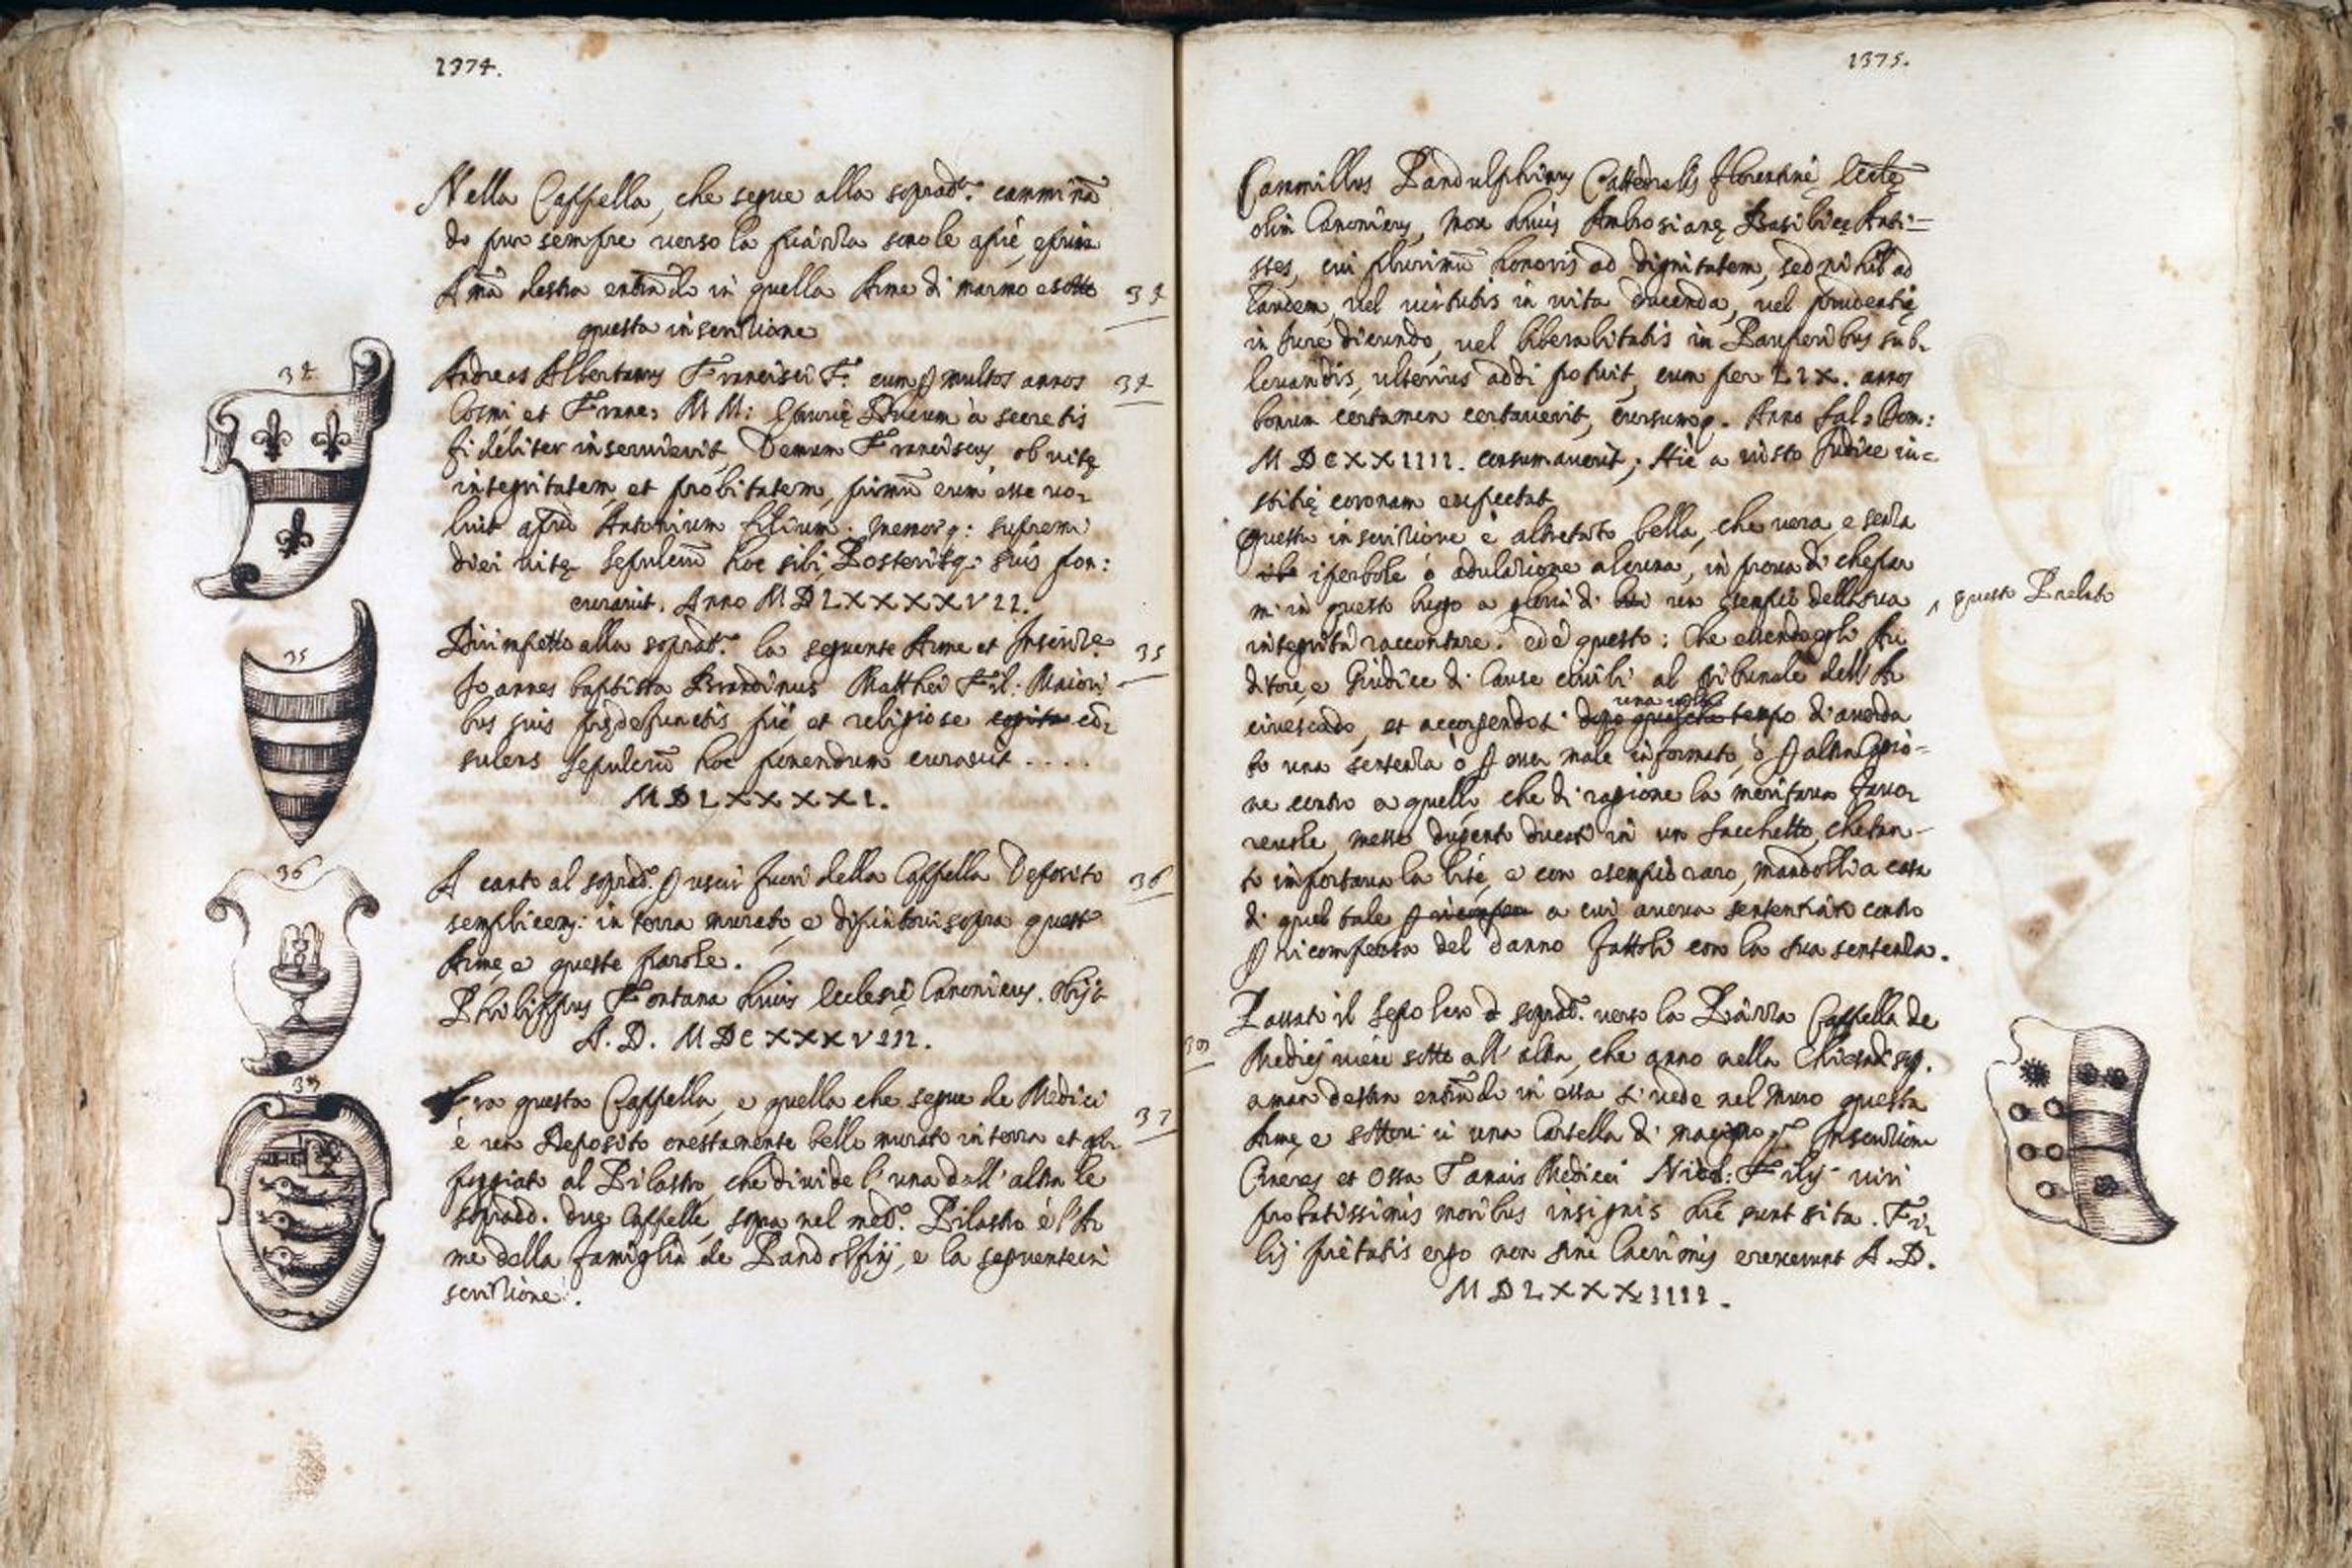 1374.
Nella Cappella, che segue alla soprad.ª cammina
do pur sempre verso la piazza
A mã destra entrãdo in quella Arme di marmo e sotto
34
questa inscrizione
34
Andreas Albertanus Francisci F. cum multos annos
34
Cosmi et Franc: M M: Etrurię Ducum à secretis
fideliter inservierit Demum Franciscus, ob vitę
integritatem, et probitatem, primũ eum esse vo-
luit apud Antonium filium. Memorq: supremi
diei vitę Sepulcrũ hoc sibi, Posterisq: suis
curavit. Anno M D L X X X X V I I.
Dirimpetto alla soprad.ª la seguente Arme et Inscriz.e
35
35
Joannes baptista Brandinus Matthei Fil: Maiori-
bus suis pie et religiose cõ-
sulens Sepulcrũ hoc ponendum curavit . . . .
M D L X X X X I.
36
A canto al soprad.º uscir fuori della Cappella Deposito
36
semplicem: in terra murato, e dipintovi sopra quest
Arme, e queste parole.
Philippus Fontana huius Ecclesię Canonicus. Obijt
A. D. M D C X X X V I I I.
37
Fra questa Cappella, e quella che segue de Medici
37
è un Deposito onestamente bello murato in terra et ap-
poggiato al Pilastro, che divide l'una dall'altra le
sopradd. due Cappelle, sopra nel med.º Pilastro è l'Ar
me della famiglia de Pandolfinj, e la seguente in
scrizione.
1375.
Cammillus Pandulphinus Cattedralis Florentinę
olim Canonicus, mox huius Ambrosianę Basilicę Anti=
stes, cui plurimũ honoris ad dignitatem, sed nihil ad
laudem, vel virtutis in vita ducenda, vel prudentię
in Jure dicundo, vel liberalitatis in Pauperibus sub-
levandis, ulterius addi potuit, cum per L I X. annos
bonum certamen certaverit, cursumq. Anno Sal: Dom:
M D C X X I I I I. consumaverit; Hic a iusto Judice iu=
stitię coronam expectat
Questa inscrizione è altretãto bella, che vera, e senza
iperbole ò adulazione alcuna, in prova di che par
mi in questo luogo a gloria di un esempio della sua
questo Prelato
integrità raccontare. ed è questo: Che essendo egli Au
ditore, e Giudice di Cause civili al Tribunale dell'Ar
una volta
civescado, et accorgendosi dopo qualche tempo d'averda
to una sentenza ò male informato, ò altra
ne contro a quello che di ragione la meritava favo-
revole, messe dugento ducati in un sacchetto, che tan-
to importava la lite, e con esempio raro, mandolli a casa
di quel tale a cui aveva sentenziato contro
ricompensa del danno fattoli con la sua sentenza.
Passato il Sepolcro d soprad.º verso la Piazza Cappella de
39
Medicj viene sotto all'altra, che anno nella Chiesa di sop.
a man destra entrãdo in essa si vede nel muro questa
Arme, e sottovi in una Cartella di Inscrizione
Cineres et Ossa Tanais Medicei Nicol: Filij viri
probatissimis moribus insignis hic sunt sita. Fi-
lij pietatis ergo non sine lacrimis erexerunt A. D.
M D L X X X I I I I.